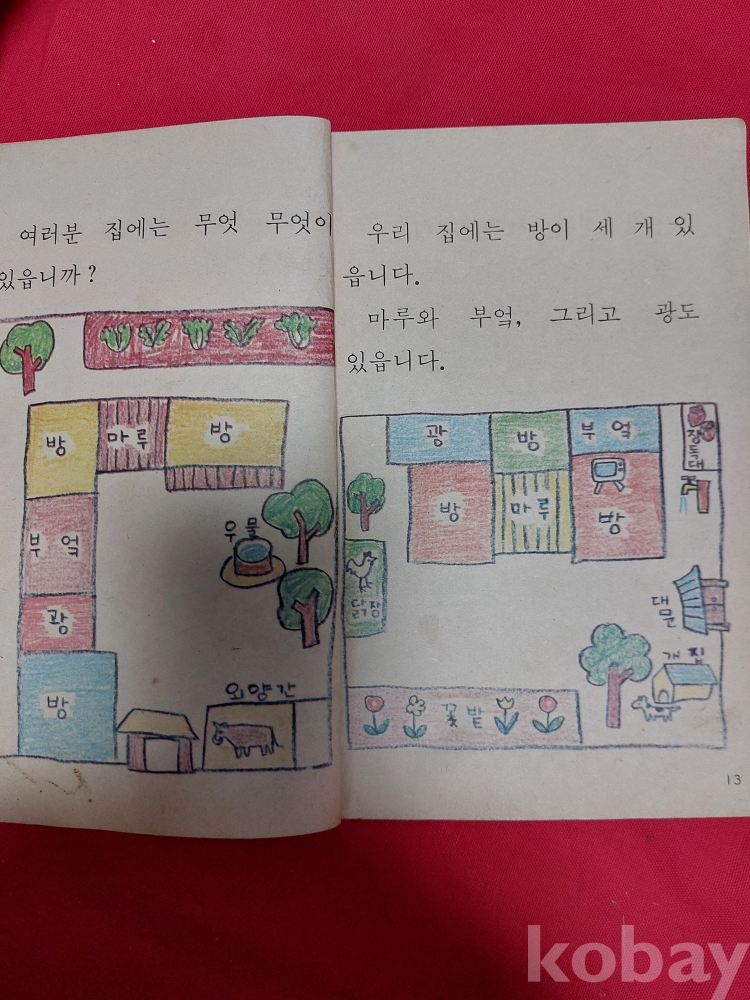 여러분 집에는 무엇 무엇이
있읍니까?
방
마루
방
부엌
우물
광
방
외양간
우리 집에는 방이 세 개 있
읍니다.
마루와 부엌, 그리고 광도
있읍니다.
광
방
부엌
장독대
방
마루
방
닭장
대문
개집
꽃밭
13
kobay